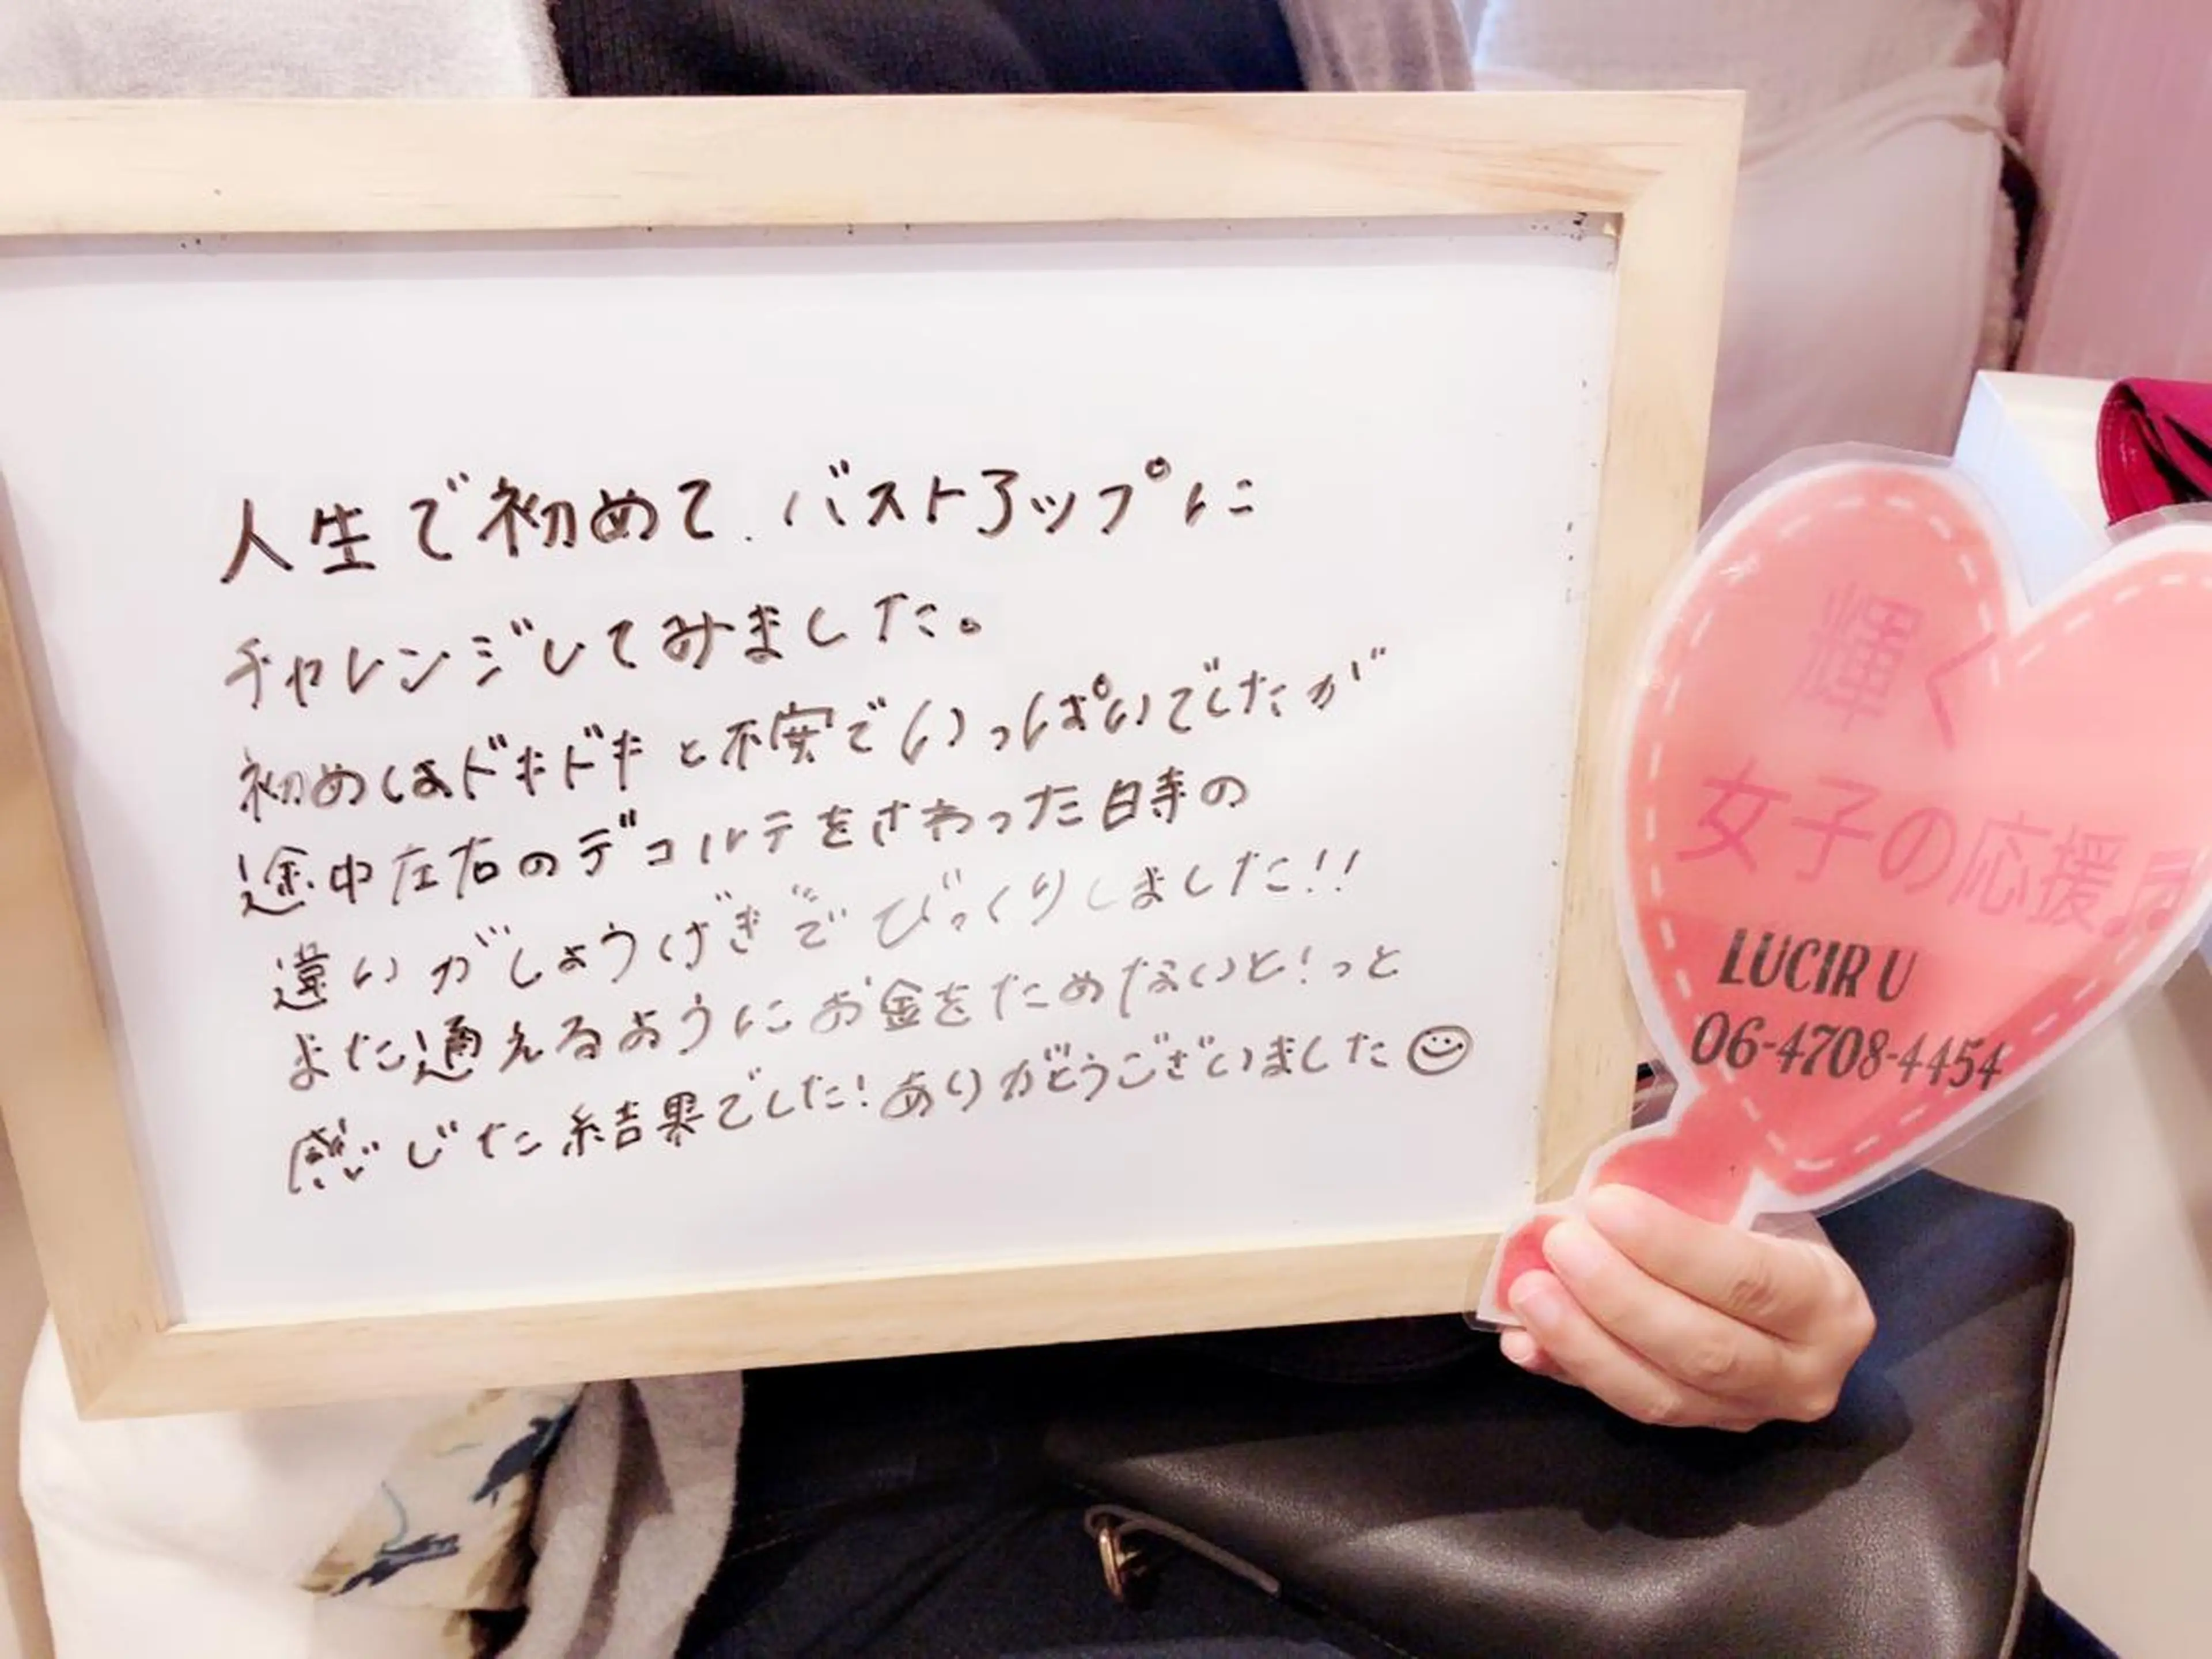 人生で初めて、バストアップに
チャレンジしてみました。
初めはドキドキと不安でいっぱいでしたが
途中左右のデコルテをさわった時の
違いがしょうげきでびっくりしました!!
また通えるようにお金をためないと!っと
感じた結果でした!ありがとうございました☺
輝く
女子の応援♬
LUCIR U
06-4708-4454